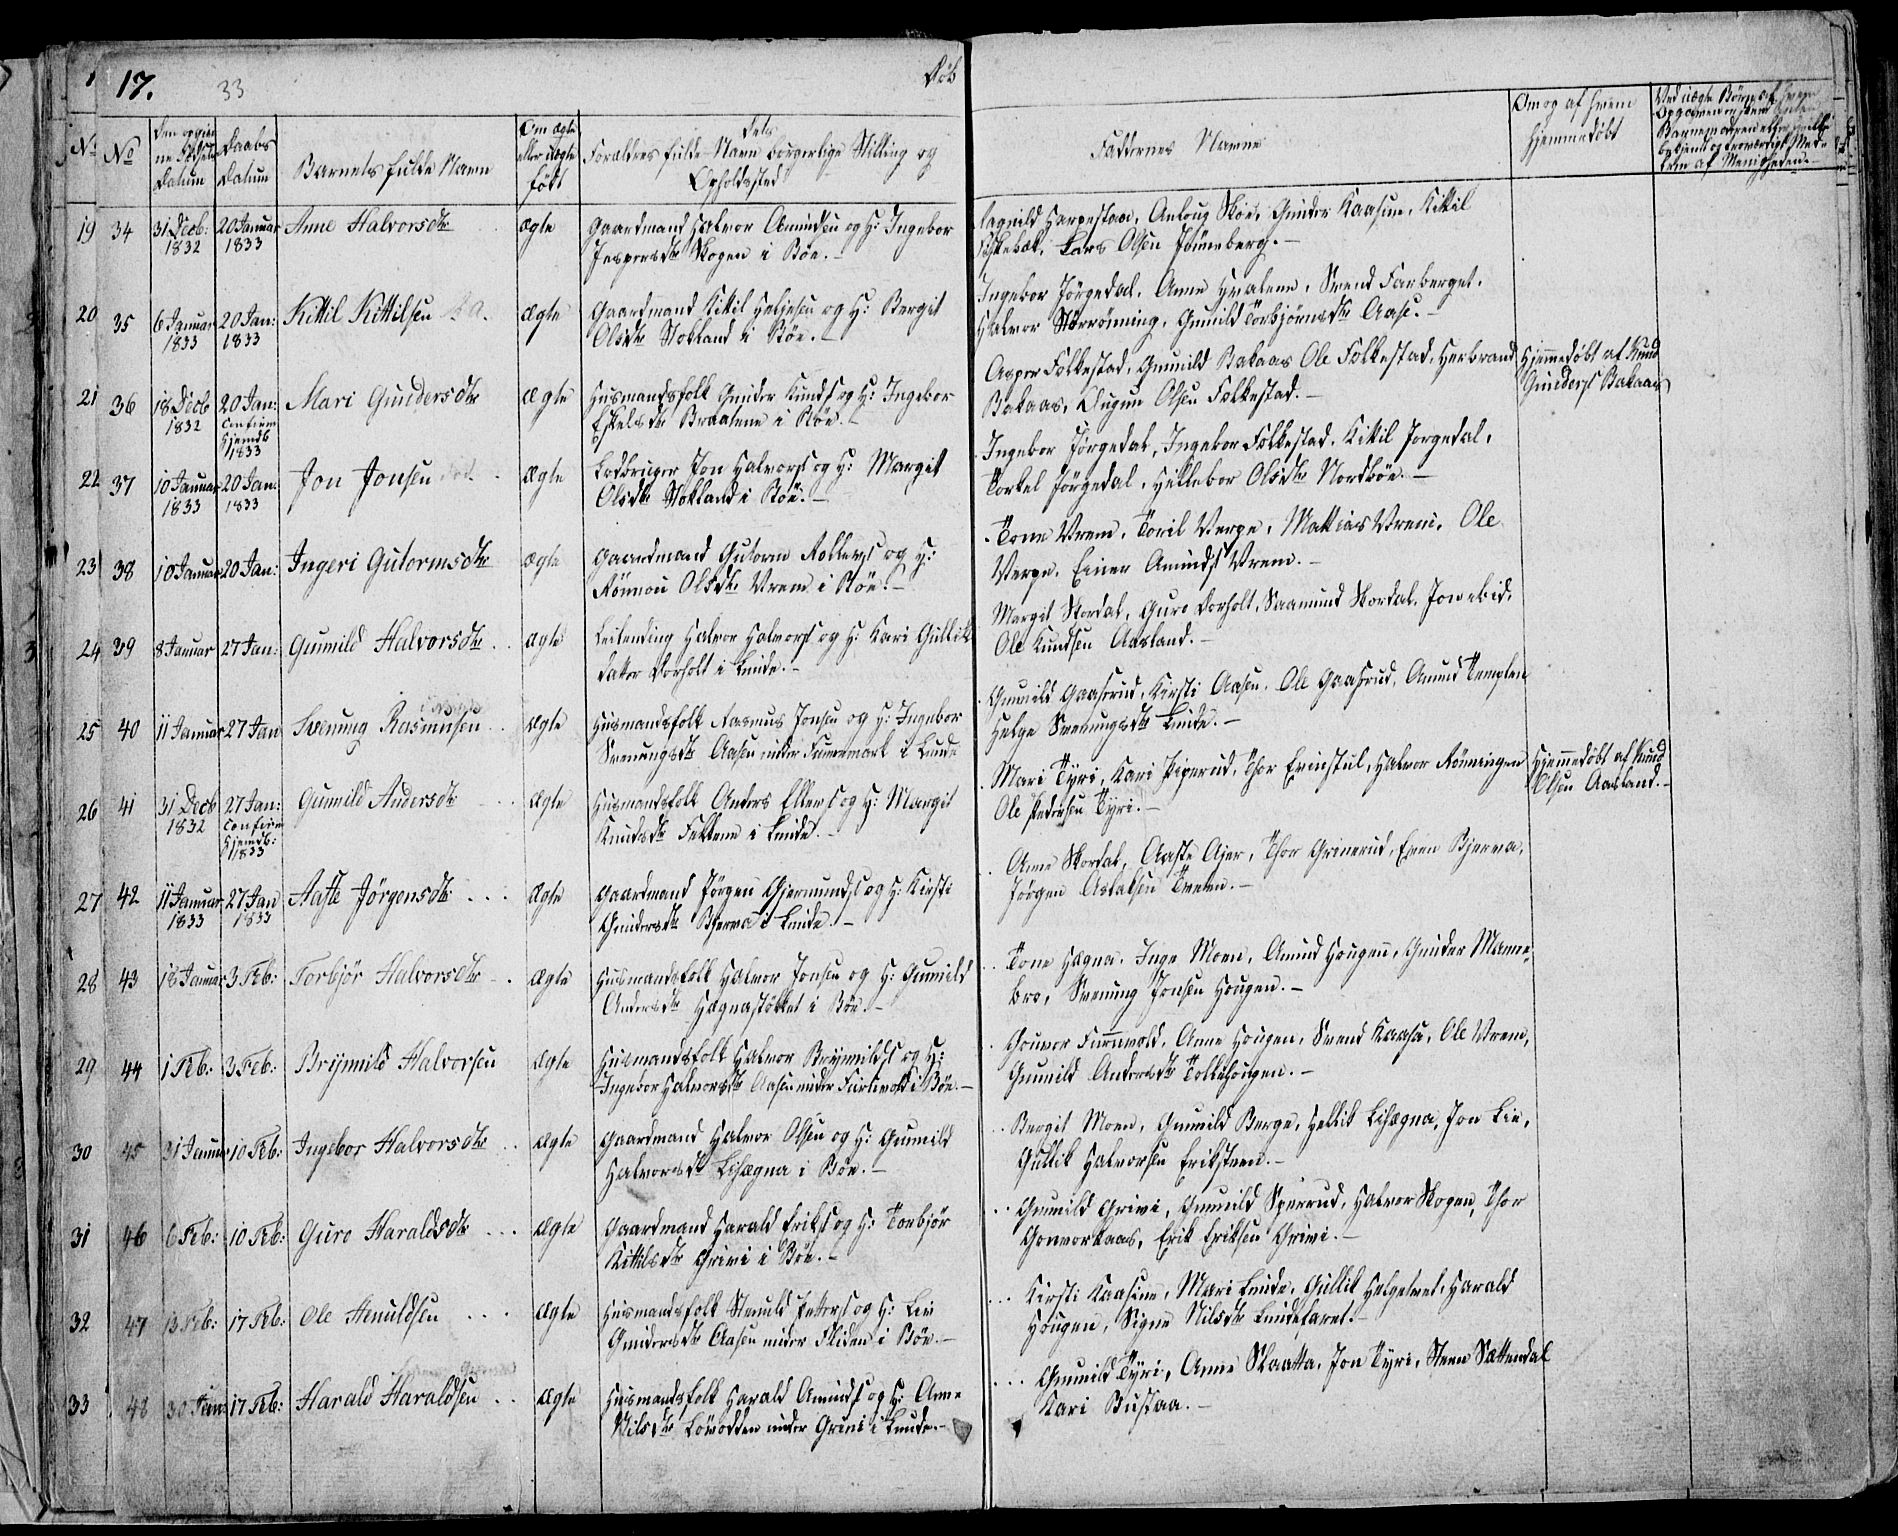 17.
33
Døb
No
No
Den opgivne Fødsels Datum
Daabs Datum
Barnets fulde Navn
Om ægte eller uægte født
Forældres fulde Navn borgerlige Stilling og Opholdssted
Faddernes Navne
Om og af hvem hjemmedøbt
19 34 31 Decb: 1832 20 Januar 1833 Anne Halvorsdtr ægte Gaardmand Halvor Amundsen og H: Ingebor
Jespersdtr Skogen i Bøe.–
Ragnild Harpestaa, Anlaug Skoe, Gunder Kaasene, Kittil
Fiskebæk, Lars Olsen Jønneberg.–
20 35 6 Januar 1833 20 Jan: 1833 Kittil Kittilsen ægte Gaardmand Kittil Heljesen og H: Bergit
Olsdtr Stokland i Bøe.–
Ingebor Jørgedal, Anne Hvalene, Svend Farberget,
Halvor Størrønning, Gunild Torbjørnsdtr Aase.–
21 36 18 Decb 1832 20 Jan: Confirm Hjemdb 1833 Mari Gundersdtr ægte Huusmandsfolk Gunder Knuds og H: Ingebor
Eskelsdtr Braatene i Bøe.–
Asper Folkestad, Gunnild Bakaas Ole Folkestad, Herbrand
Bakaas, Augun Olsen Folkestad.–
Hjemmedøbt af Knud
Gunders Bakaas
22 37 10 Januar 1833 20 Jan: 1833 Jon Jonsen ægte Lodbruger Jon Halvors og H: Margit
Olsdtr Stokland i Bøe.–
Ingebor Jørgedal, Ingebor Folkestad, Kittil Jorgedal,
Torkel Jørgedal, Hellebor Olsdtr Nordbøe.–
23 38 10 Januar 20 Jan: Ingeri Gutormsdtr ægte Gaardmand Gutorm Rollevs og H:
Rønnou Olsdtr Vrem i Bøe.–
Tone Vrem, Toril Verpe, Mattias Vrem, Ole
Verpe, Einer Amunds Vrem.–
24 39 8 Januar 27 Jan: Gunnild Halvorsdtr ægte Leilending Halvor Halvors og H: Kari Gullik-
datter Dorholt i Lunde.–
Margit Nordal, Guro Dorholt, Saamund Nordal, Jon ibid,
Ole Knudsen Aasland.–
25 40 11 Januar 27 Jan Svenung Rasmusen ægte Huusmandsfolk Rasmus Jonsen og H: Ingebor
Svenungsdtr Aasen under Furemark i Lunde
Gunnild Gaasrud, Kirsti Aasen, Ole Gaasrud, Amund Templen
Helge Svenungsdtr Lunde.–
26 41 31 Decb 1832 27 Jan: Confirm Hjemdb: 1833 Gunnild Andersdtr ægte Huusmandsfolk Anders Ellevs og H: Margit
Knudsdtr Fekkene i Lunde.–
Mari Tyri, Kari Piperud, Thor Evinstul, Halvor Rønningen
Ole Pedersen Tyri.–
Hjemmedøbt af Knud
Olsen Aasland.–
27 42 11 Januar 1833 27 Jan 1833 Aaste Jørgensdtr ægte Gaardmand Jørgen Gjermunds og H: Kirsti
Gundersdtr Bjerva i Lunde.–
Anne Nordal, Aaste Ajer, Thor Grinerud, Even Bjerva,
Jørgen Aslaksen Tveten.–
28 43 18 Januar 3 Feb: Torbjør Halvorsdtr ægte Huusmandsfolk Halvor Jonsen og H: Gunnild
Andersdtr Hægnastøkket i Bøe.–
Tone Hægna, Inge Moen, Amund Hougen, Gunder Manne-
bro, Svenung Jonsen Hougen.–
29 44 1 Feb: 3 Feb: Brynnild Halvorsen ægte Huusmandsfolk Halvor Brynnilds og H:
Ingebor Halvorsdtr Aasen under Furuvold i Bøe.–
Gouvor Furuvold, Anne Hougen, Svend Kaasa, Ole Vrem,
Gunnild Andersdtr Tollefhougen.–
30 45 31 Januar 10 Feb: Ingebor Halvorsdtr ægte Gaardmand Halvor Olsen og H: Gunnild
Halvorsdtr Lihægna i Bøe.–
Bergit Moen, Gunnild Berge, Hellik Lihægna, Jon Lie,
Gullik Halvorsen Eriksteen.–
31 46 6 Feb: 10 Feb: Guro Haraldsdtr ægte Gaardmand Harald Eriks og H: Torbjør
Kittilsdtr Grivi i Bøe.–
Gunnild Grivi, Gunnild Sperrud, Halvor Skogen, Thor
Gonvorkaas, Erik Eriksen Grivi.–
32 47 13 Feb: 17 Feb: Ole Stenuldsen ægte Huusmandsfolk Stenuld Petters og H: Liv
Gundersdtr Aasen under Eliden i Bøe.–
Kirsti Kaasene, Mari Lunde, Gullik Helgetvet, Harald
Hougen, Signe Nilsdtr Lundefaret.–
33 48 30 Jan: 17 Feb: Harald Haraldsen ægte Huusmandsfolk Harald Amunds og H: Anne
Nilsdtr Løvodden under Grini i Lunde.–
Gunnild Tyri, Anne Skaatta, Jon Tyri, Steen Sættendal
Kari Bustaa.–